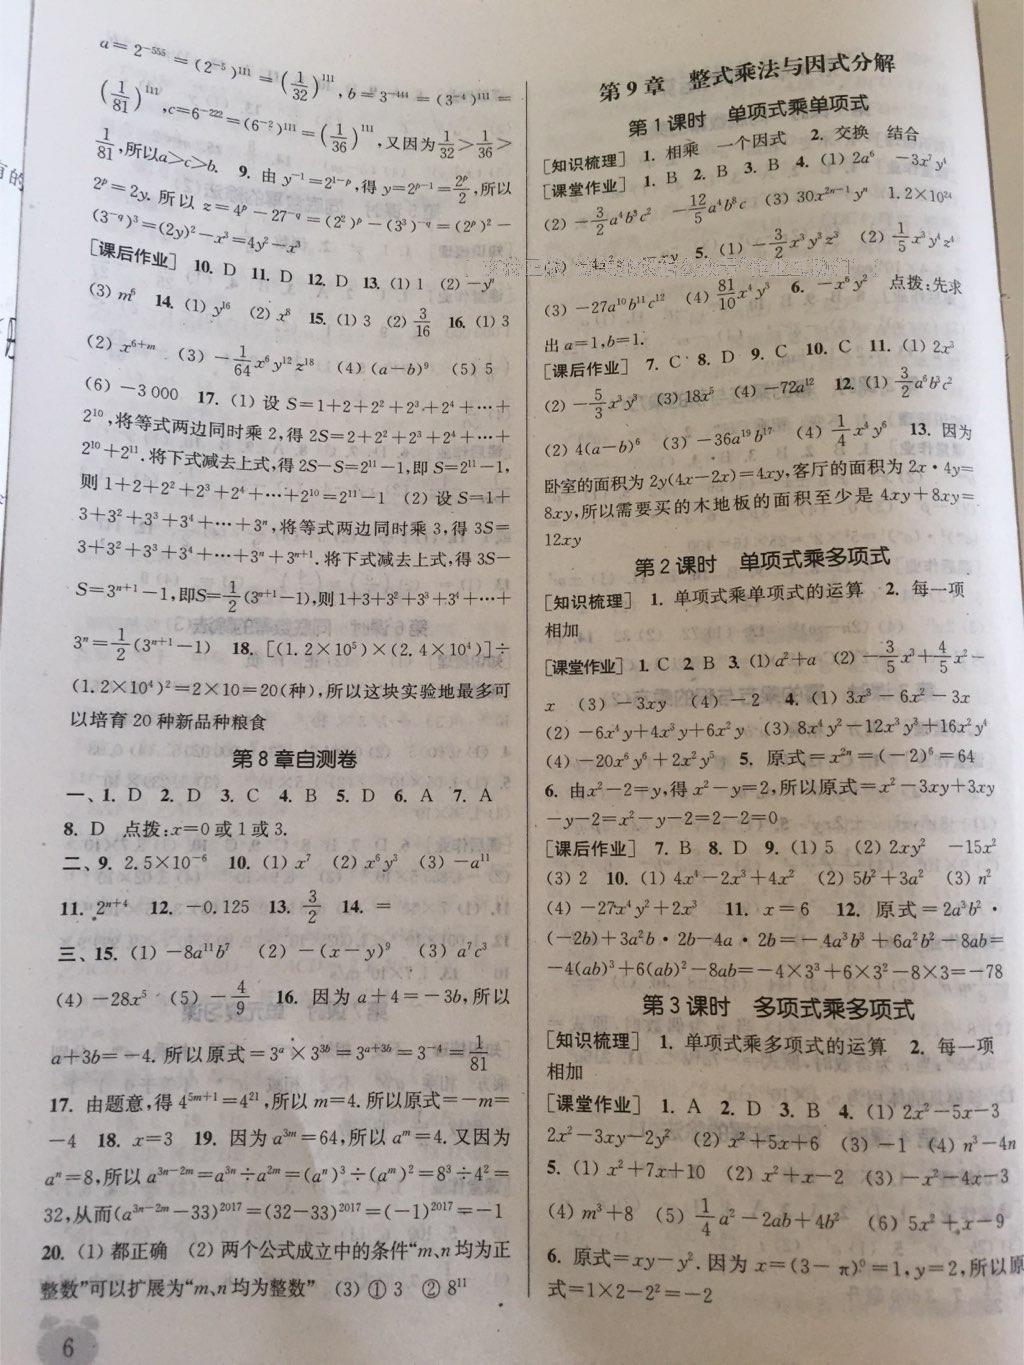 a=2⁻⁵⁵⁵=(2⁻⁵)¹¹¹=(1/32)¹¹¹,b=3⁻⁴⁴⁴=(3⁻⁴)¹¹¹=
(1/81)¹¹¹,c=6⁻²²²=(6⁻²)¹¹¹=(1/36)¹¹¹,又因为1/32>1/36>
1/81,所以a>c>b. 9. 由y⁻¹=2¹⁻ᵖ,得y=2ᵖ⁻¹=2ᵖ/2,所以
2ᵖ=2y. 所以z=4ᵖ-27^(-q)=(2²)ᵖ-(3³)^(-q)=(2ᵖ)²-
(3^(-q))³=(2y)²-x³=4y²-x³
[课后作业] 10. D 11. D 12. D 13. (1) 1 (2) -y⁸
(3) m⁶ 14. (1) y¹⁶ (2) x⁸ 15. (1) 3 (2) 3/16 16. (1) 3
(2) x⁶⁺ᵐ (3) -1/64x⁶y¹²z¹⁸ (4) (a-b)⁹ (5) 5
(6) -3 000 17. (1) 设S=1+2+2²+2³+2⁴+…+
2¹⁰,将等式两边同时乘2,得2S=2+2²+2³+2⁴+…+
2¹⁰+2¹¹. 将下式减去上式,得2S-S=2¹¹-1,即S=2¹¹-1,
则1+2+2²+2³+2⁴+…+2¹⁰=2¹¹-1 (2) 设S=1+
3+3²+3³+3⁴+…+3ⁿ,将等式两边同时乘3,得3S=
3+3²+3³+3⁴+…+3ⁿ+3ⁿ⁺¹. 将下式减去上式,得3S-
S=3ⁿ⁺¹-1,即S=1/2(3ⁿ⁺¹-1),则1+3+3²+3³+3⁴+…+
3ⁿ=1/2(3ⁿ⁺¹-1) 18. [(1.2×10⁵)×(2.4×10⁴)]÷
(1.2×10⁴)²=2×10=20(种),所以这块实验地最多可
以培育20种新品种粮食
第8章自测卷
一、1. D 2. D 3. C 4. B 5. D 6. A 7. A
8. D 点拨:x=0或1或3.
二、9. 2.5×10⁻⁶ 10. (1) x⁷ (2) x⁶y³ (3) -a¹¹
11. 2ⁿ⁺⁴ 12. -0.125 13. 3/2 14. =
三、15. (1) -8a¹¹b⁷ (2) -(x-y)⁹ (3) a⁷c³
(4) -28x⁵ (5) -4/9 16. 因为a+4=-3b,所以
a+3b=-4. 所以原式=3ᵃ×3³ᵇ=3ᵃ⁺³ᵇ=3⁻⁴=1/81
17. 由题意,得4⁵ᵐ⁺¹=4²¹,所以m=4. 所以原式=-m=
-4 18. x=3 19. 因为a³ᵐ=64,所以aᵐ=4. 又因为
aⁿ=8,所以a³ⁿ⁻²ᵐ=a³ⁿ÷a²ᵐ=(aⁿ)³÷(aᵐ)²=8³÷4²=
32,从而(a³ⁿ⁻²ᵐ-33)²⁰¹⁷=(32-33)²⁰¹⁷=(-1)²⁰¹⁷=-1
20. (1) 都正确 (2) 两个公式成立中的条件“m、n均为正
整数”可以扩展为“m、n均为整数” (3) ① 3 ② 8¹¹
6
第9章 整式乘法与因式分解
第1课时 单项式乘单项式
[知识梳理] 1. 相乘 一个因式 2. 交换 结合
[课堂作业] 1. B 2. B 3. B 4. (1) 2a⁶ -3x²y⁴
(2) -3/2a⁴b³c² -12/5a⁴b⁸c (3) 30x²ⁿ⁻¹yⁿ 1.2×10²⁴
(4) -xy 5. (1) -3/2x³y³z³ (2) 1/5x³y⁴z⁴
(3) -27a¹⁰b¹¹c¹² (4) 81/10x⁴y³ 6. -x⁶y² 点拨:先求
出a=1,b=1.
[课后作业] 7. C 8. D 9. C 10. C 11. (1) 2x³
(2) -5/3x³y³ (3) 18x⁵ (4) -72a¹² 12. (1) 3/2a⁶b³c²
(2) 4(a-b)⁶ (3) -36a¹⁹b¹⁷ (4) 1/4x⁴y⁶ 13. 因为
卧室的面积为2y(4x-2x)=4xy,客厅的面积为2x·4y=
8xy,所以需要买的木地板的面积至少是4xy+8xy=
12xy
第2课时 单项式乘多项式
[知识梳理] 1. 单项式乘单项式的运算 2. 每一项
相加
[课堂作业] 1. C 2. B 3. (1) a²+a (2) -3/5x³+4/5x²-
x (3) -3xy (4) -2 4. (1) 3x³-6x²-3x
(2) -6x⁴y+4x³y+6x²y (3) 8x⁴y²-12x³y³+16x²y⁴
(4) -20x⁶y⁶+2x²y⁵ 5. 原式=x²ⁿ=(-2)⁶=64
6. 由x²-2=y,得x²-y=2,所以原式=x²-3xy+3xy
-y-2=x²-y-2=2-2=0
[课后作业] 7. B 8. D 9. (1) 5 (2) 2xy² -15x²
(3) 2 10. (1) 4x⁴-2x³+4x² (2) 5b²+3a² (3) n²
(4) -27x⁴y²+2x³ 11. x=6 12. 原式=2a³b²·
(-2b)+3a²b·2b-4a·2b=-4a³b³+6a²b²-8ab=
-4(ab)³+6(ab)²-8ab=-4×3³+6×3²-8×3=-78
第3课时 多项式乘多项式
[知识梳理] 1. 单项式乘多项式的运算 2. 每一项
相加
[课堂作业] 1. A 2. D 3. B 4. (1) 2x²-5x-3
2x²-3xy-2y² (2) x²+5x+6 (3) -1 (4) n³-4n
5. (1) x²+7x+10 (2) x²+x-2 (3) -x²-4x-3
(4) m³+8 (5) 1/4a²-2ab+4b² (6) 5x²+x-9
6. 原式=xy-y². 因为x=(3-π)⁰=1,y=2,所以原
式=1×2-2²=-2